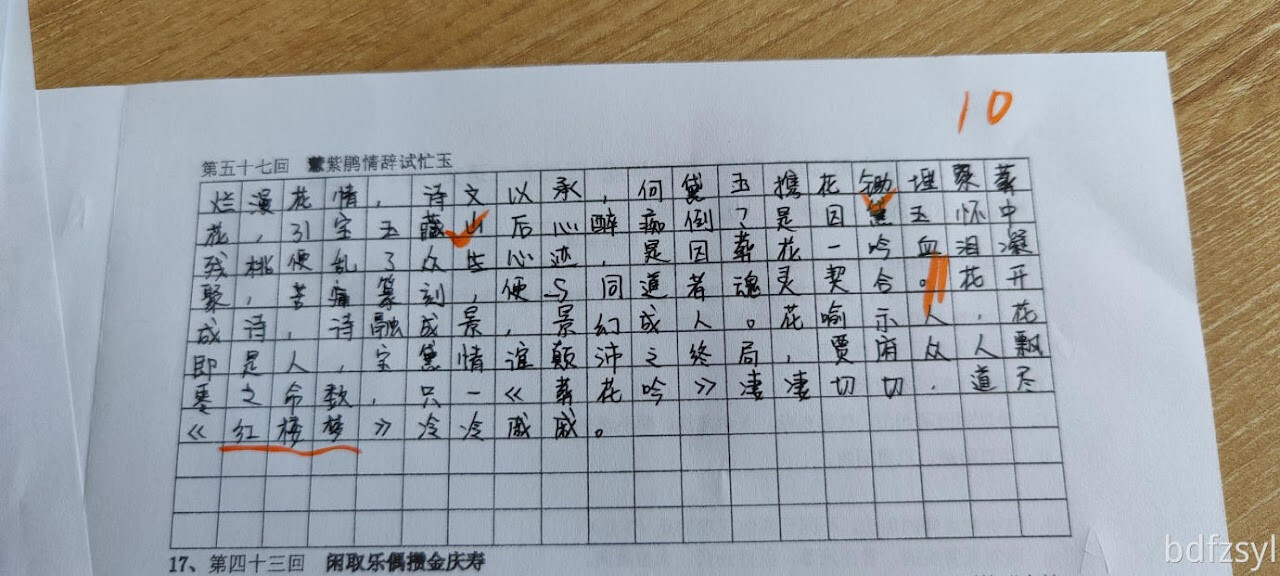 10
第五十七回 慧紫鹃情辞试忙玉
烂漫花情，诗文以承，何黛玉携花锄埋冢葬
花，引宝玉藏山后心醉痴倒？是因黛玉怀中
残桃便乱了众生心迹，是因葬花一吟血泪凝
聚，苦痛篆刻，便与同道者魂灵契合。花开
成诗，诗融成景，景幻成人。花喻示人，花
即是人，宝黛情谊颠沛之终局，贾府众人飘
零之命数，只一《葬花吟》凄凄切切，道尽
《红楼梦》冷冷戚戚。
17、第四十三回 闲取乐偶攒金庆寿
bdfzsyl